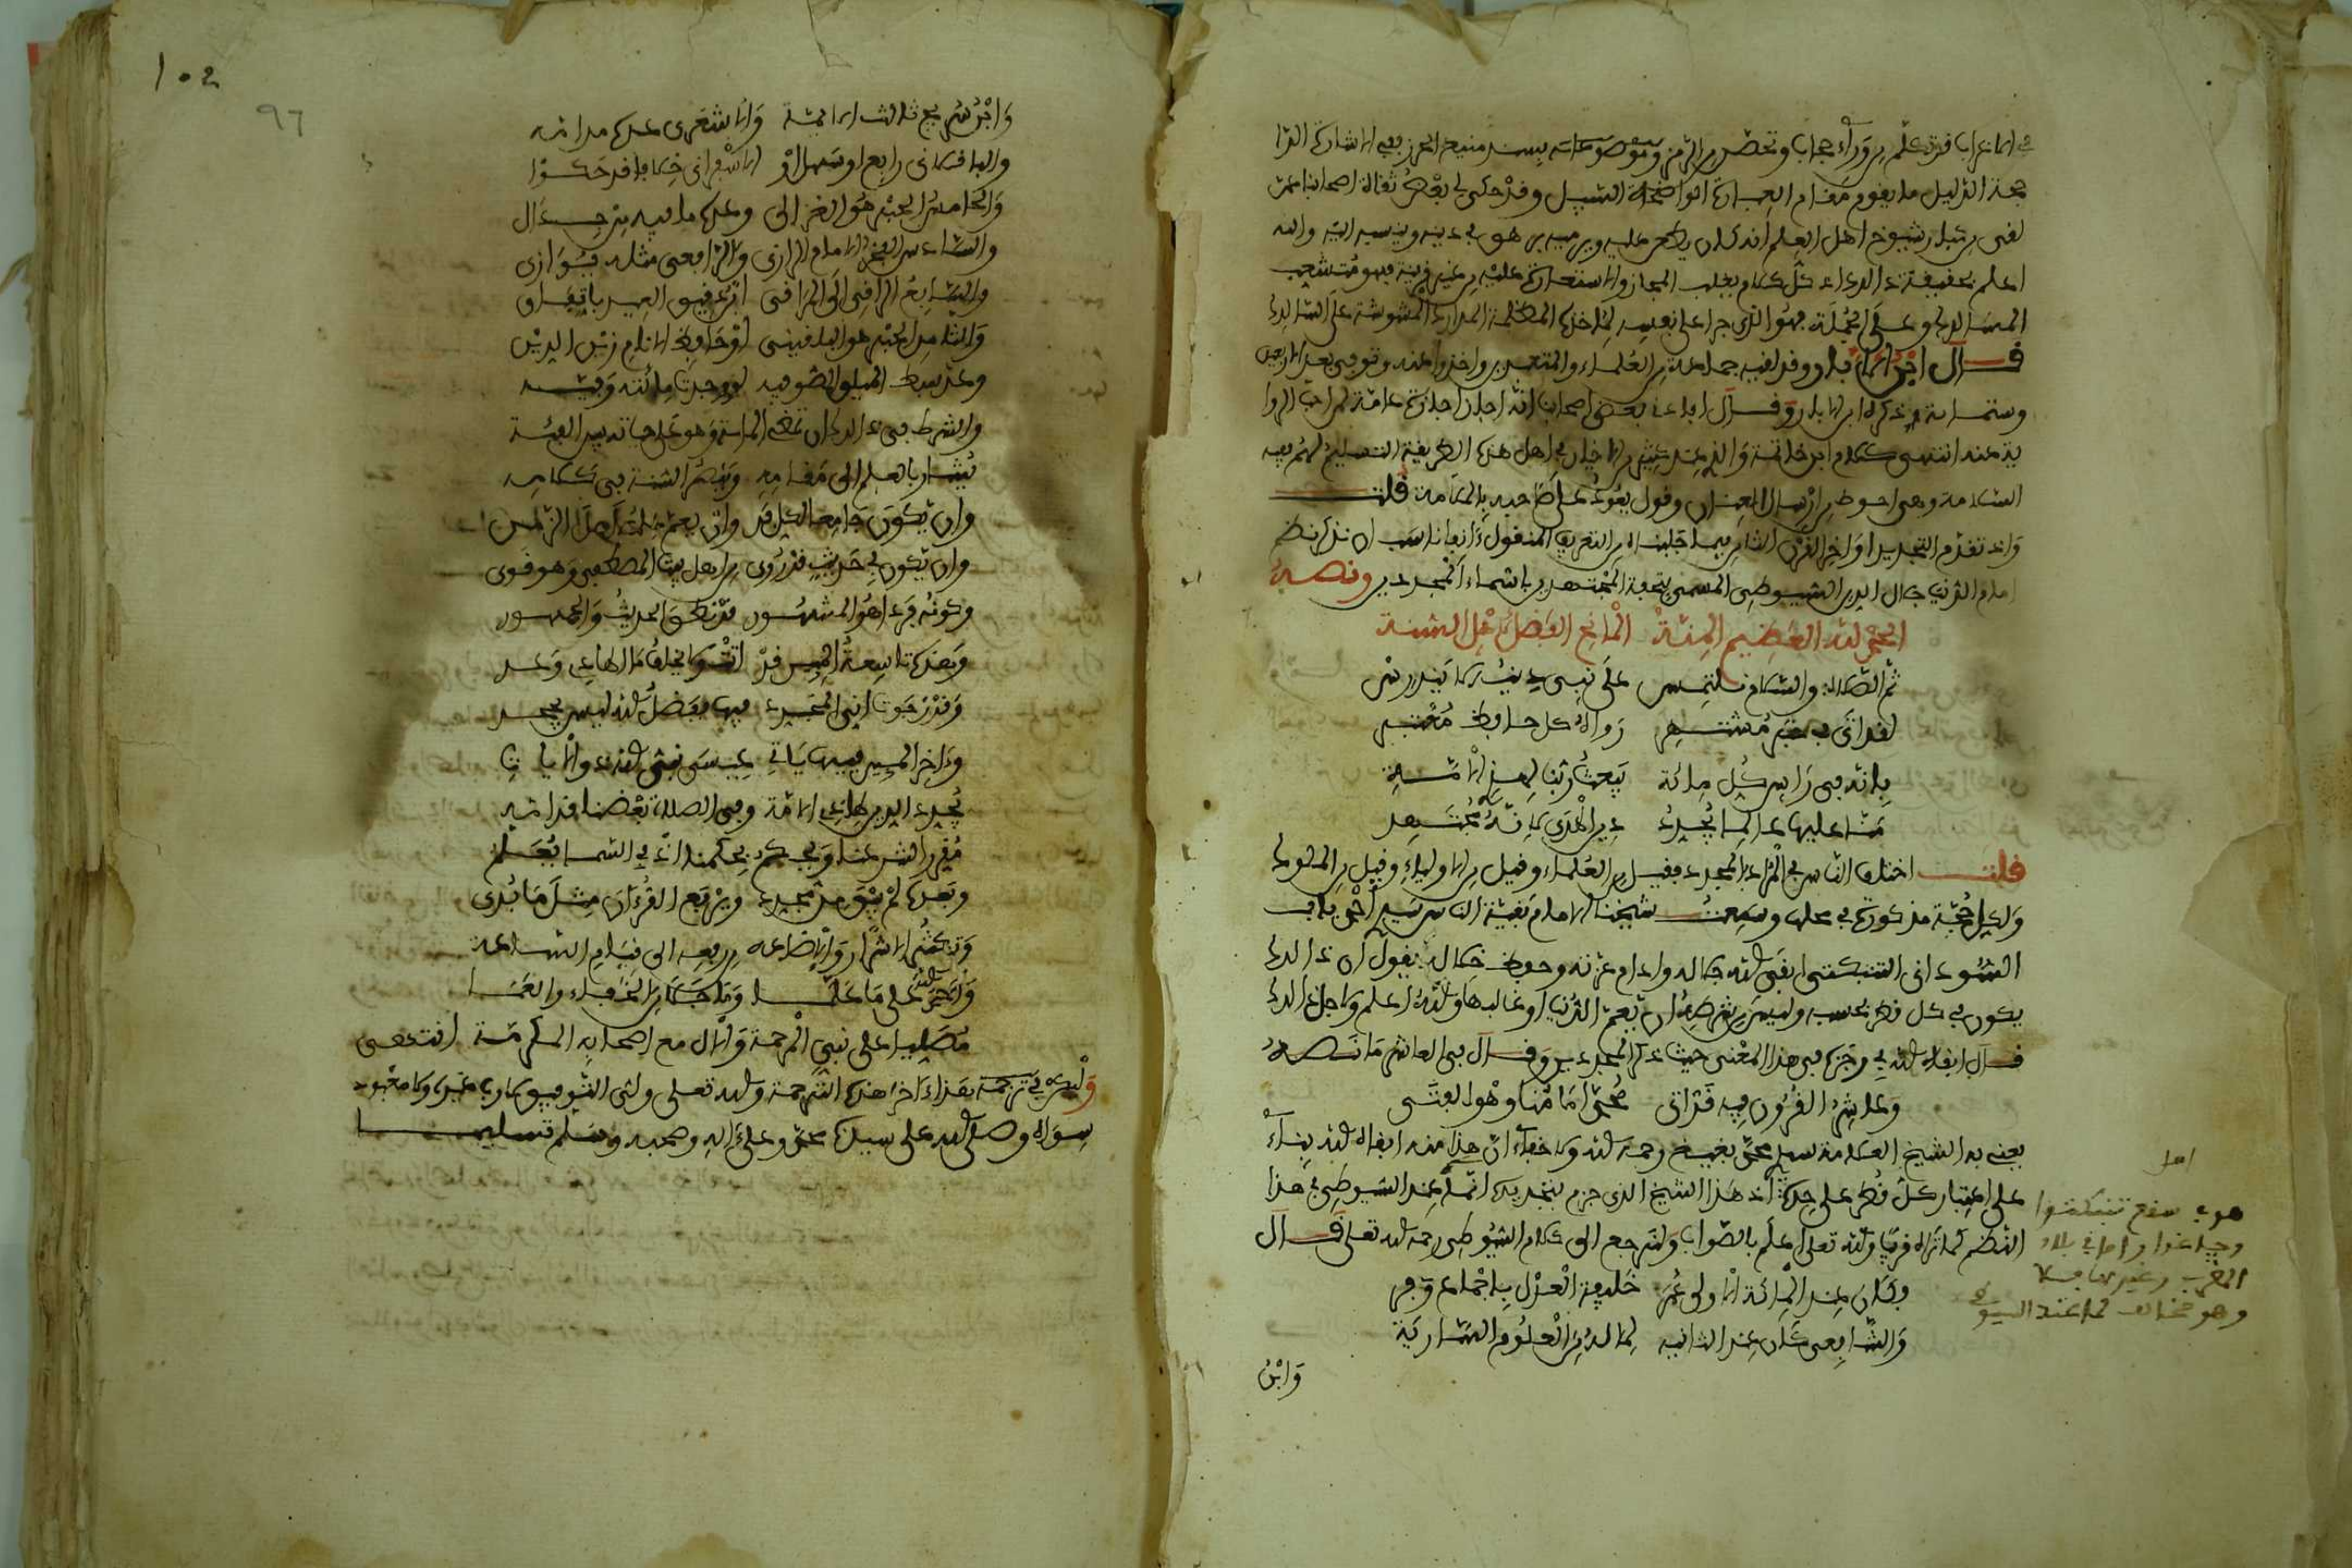 في الاغراب فتكلم من وراء حجاب وتحصن من الرمز وموضوعاته بسند منيع الحرز ففي الاشارة الدا
جهة الدليل ما يقوم مقام العبارة الواضحة السبيل وقد حكى لي بعض ثقات اصحابنا ممن
لقى من تبلد شيوخ اهل العلم انه كان يطعن عليه ويرميه بوهن في دينه وينسبه اليه والله
اعلم بحقيقة ذالك اذ كل كلام يغلب المجاز والاستعارة عليه من غير قرينة فهو متشعب
المسالك وعلى الجملة فهو الذي جرا على نفسه لماخذه المظلمة المدارك المشوشة على السالك
قال ابن الابار وقد لقيه جماعة من العلماء والمتعبدين واخذوا عنه وتوفي بعد الاربعين
وستمائة ذكره ابن الابار وقال افادنا بعض اصحابنا انه اجاز اجازة عامة لمن احب الروا
ية عنه انتهى كلام ابن خاتمة والذي عند كثير من الاخيار في اهل هذه الطريقة التسليم لهم ففيه
السلامة وهي احوط من ارسال العنان وقول يعود على صاحبه بالملامة قلت
واذ تقدم التجديد اواخر القرن الثامن فيما جلبناه من التعريف المنقول ءانفا ناسب ان نذكر نظم
امام الدنيا جلال الدين السيوطي المسمى بتحفة المجتهدين باسماء المجددين ونصه
الحمد لله العظيم المنة المانح الفضل لاهل السنة
ثم الصلاة والسلام نلتمس على نبي دينه لا يندرس
لقد اتى في خبر مشتهر رواه كل حافظ معتبر
بانه في راس كل مائة يبعث ربنا لهذي الامة
منا عليها عالما يجدد دين الهدى لانه مجتهد
قلت اختلف الناس في المراد بالمجدد فقيل من العلماء وقيل من الاولياء وقيل من الملوك
ولكل حجة مذكورة في محلها وسمعت شيخنا الامام بغية الناس سيدي احمد بابا
السوداني التنبكتي ابقى الله جلاله وادام عزته وحفظ خلاله يقول ان ذالك
يكون في كل قطر بحسبه وليس من شرطه ان يعم الدنيا او غالبها والله اعلم ولاجل ذالك
قال ابقاه الله في رجزه في هذا المعنى حيث ذكر المجددين وقال في العاشر ما نصه
وعاشر القرون فيه قد اتى محمد امامنا وهو الفتى
يعني به الشيخ العلامة سيدي محمد بغيغ رحمه الله ولا خفاء ان هذا منه ابقاه الله بناء
على اعتبار كل قطر على حدة اذ هذا الشيخ الذي جزم بتجديده انما عند السيوطي في هذا
النظم كما تراه قريبا والله تعالى اعلم بالصواب ولنرجع الى كلام السيوطي رحمه الله تعالى قال
وكان عند المائة الاولى عمر خليفة العدل باجماع وقر
والشافعي كان عند الثانيه لما له من العلوم الساريه
وابن
وجلاغوا واما في بلاد
المغرب وغيرها فلا
وهو مخالف لما عند السيوطي
102
٩٦
وابن سريج ثالث الايمة والاشعري عده من امه
والباقلاني رابع او سهل او الاسفراني خلافا قد حكوا
والخامس الحبر هو الغزالي وعده ما فيه من جدال
والسادس الفخر الامام الرازي والرافعي مثله يوازي
والسابع الراقي الى المراقي ابن دقيق العيد باتفاق
والثامن الحبر هو البلقيني او حافظ الانام زين الدين
وعد سبط الميلق الصوفيه لو وجدت مائته وفيه
والشرط في ذالك ان تمضي الماية وهو على حياته بين الفئة
يشار بالعلم الى مقامه وينصر السنة في كلامه
وان يكون جامعا لكل فن وان يعم علمه اهل الزمن
وان يكون في حديث قد روي من اهل بيت المصطفى وهو قوي
وكونه فردا هو المشهور قد نطق الحديث والجمهور
وهذه تاسعة المئين قد اتت ولا يخلف ما الهادي وعد
وقد رجوت انني المجدد فيها بفضل الله ليس يجحد
وءاخر المئين فيها ياتي عيسى نبي الله ذو الايات
يجدد الدين لهاذي الامة وفي الصلاة بعضنا قد امه
مقررا لشرعنا ويحكم بحكمنا اذ في السما يعلم
وبعده لم يبق من مجدد ويرفع القرءان مثل ما بدي
وتكثر الاشرار والاضاعه من رفعه الى قيام الساعة
واحمد الله على ما علما وما جلا من الخفاء والعما
مصليا على نبي الرحمة والال مع اصحابه المكرمة انتهى
وليكن في ترجمة بغداد ءاخر هذه الترجمة والله تعالى ولي التوفيق لا رب غيره ولا معبود
سواه وصلى الله على سيدنا محمد وعلى ءاله وصحبه وسلم تسليما